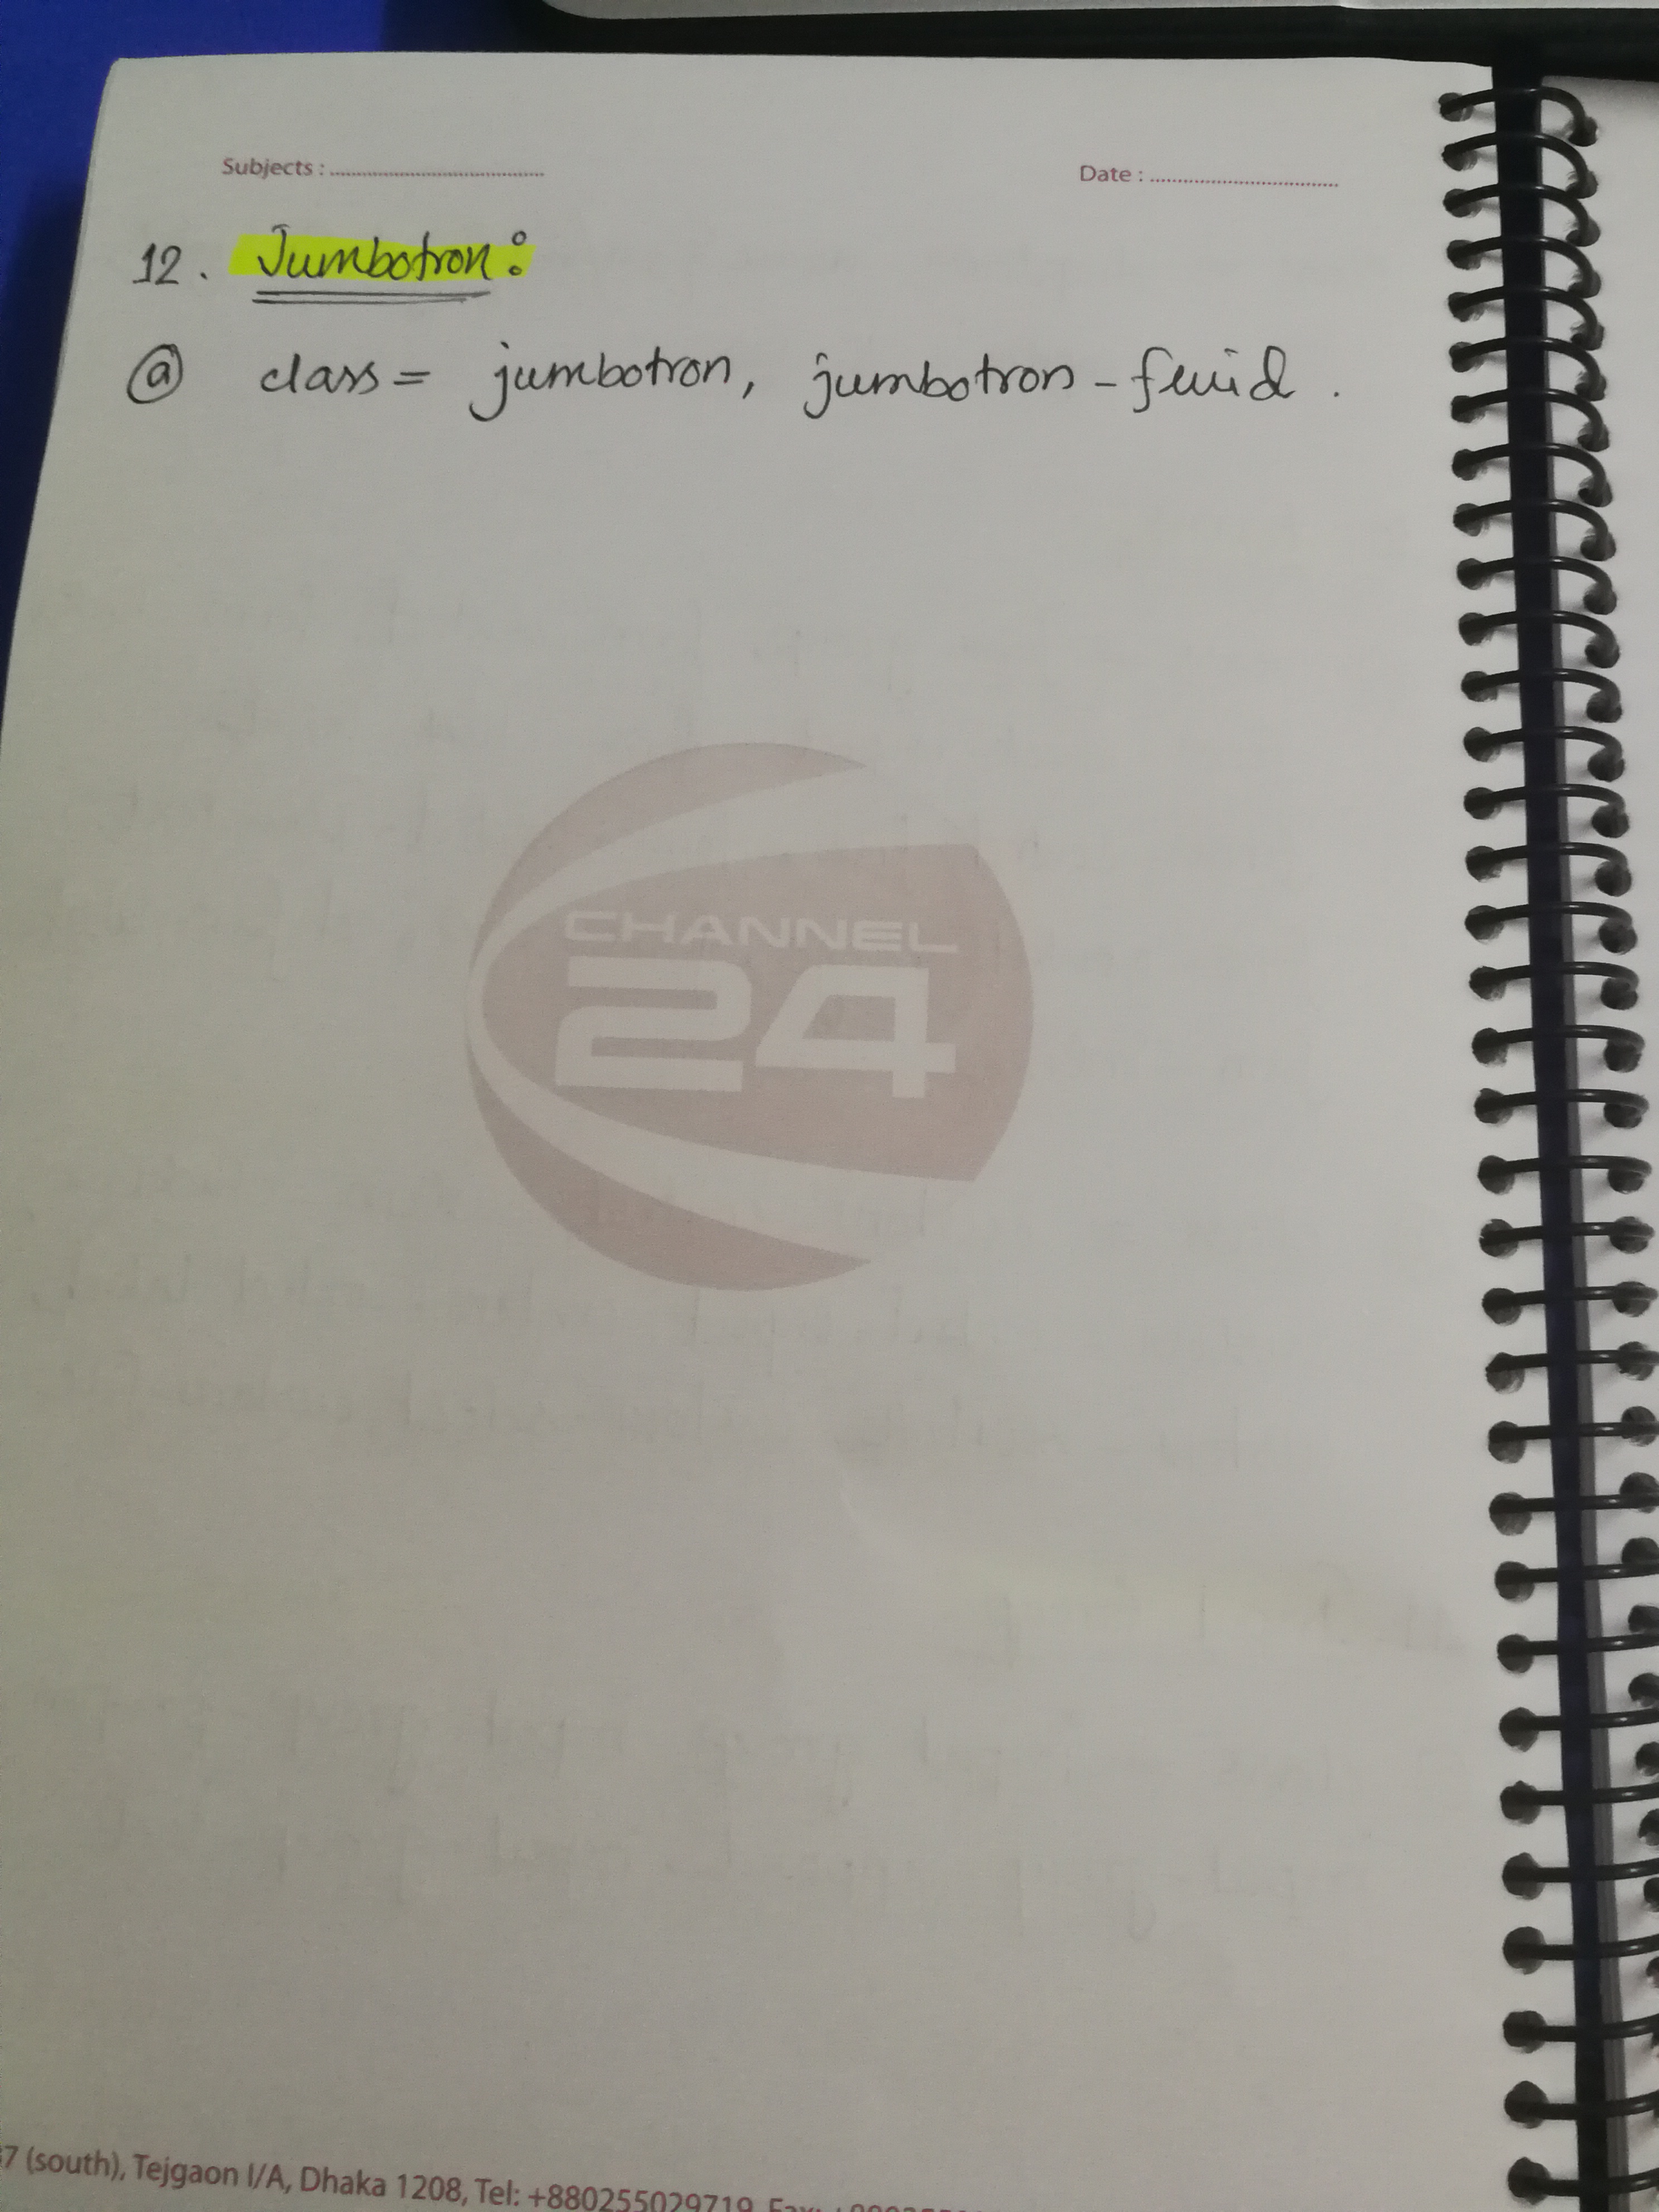 Subjects : ........................................ Date : ...................................
12. Jumbotron:
ⓐ class = jumbotron, jumbotron-fluid.
CHANNEL
24
7 (south), Tejgaon I/A, Dhaka 1208, Tel: +880255029719, Fax: